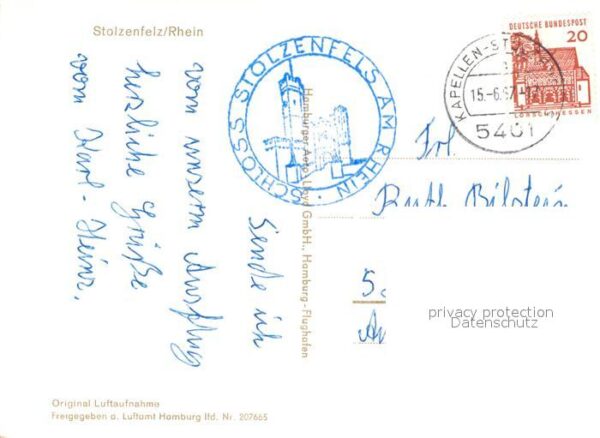 Stolzenfelz/Rhein
SCHLOSS STOLZENFELS AM RHEIN
KAPELLEN-ST
15.-6.67.-17
5401
DEUTSCHE BUNDESPOST
20
LORSCH/HESSEN
Hamburger Aero-Lloyd GmbH., Hamburg-Flughafen
vom unserm Ausflug
Sende ich
herzliche Grüße
vom Karl-Heinz.
Frl.
Ruth Bilstein
5
privacy protection
Datenschutz
Original Luftaufnahme
Freigegeben d. Luftamt Hamburg lfd. Nr. 207665